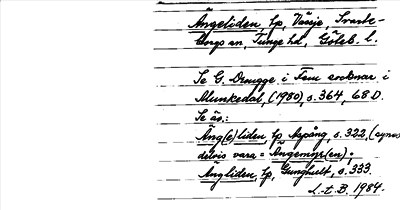 Ängeliden, tp, Vässje, Svarte-
borgs sn, Tunge hd, Göteb. l.
Se G. Drugge i Fem socknar i
Munkedal, (1980), s. 364, 68 D.
Se äv.:
Äng(e)liden, tp Aspång, s. 322, (synes
delvis vara = Ängemyr(en);
Ängliden, tp, Gunghult, s. 333.
L-t B. 1984.